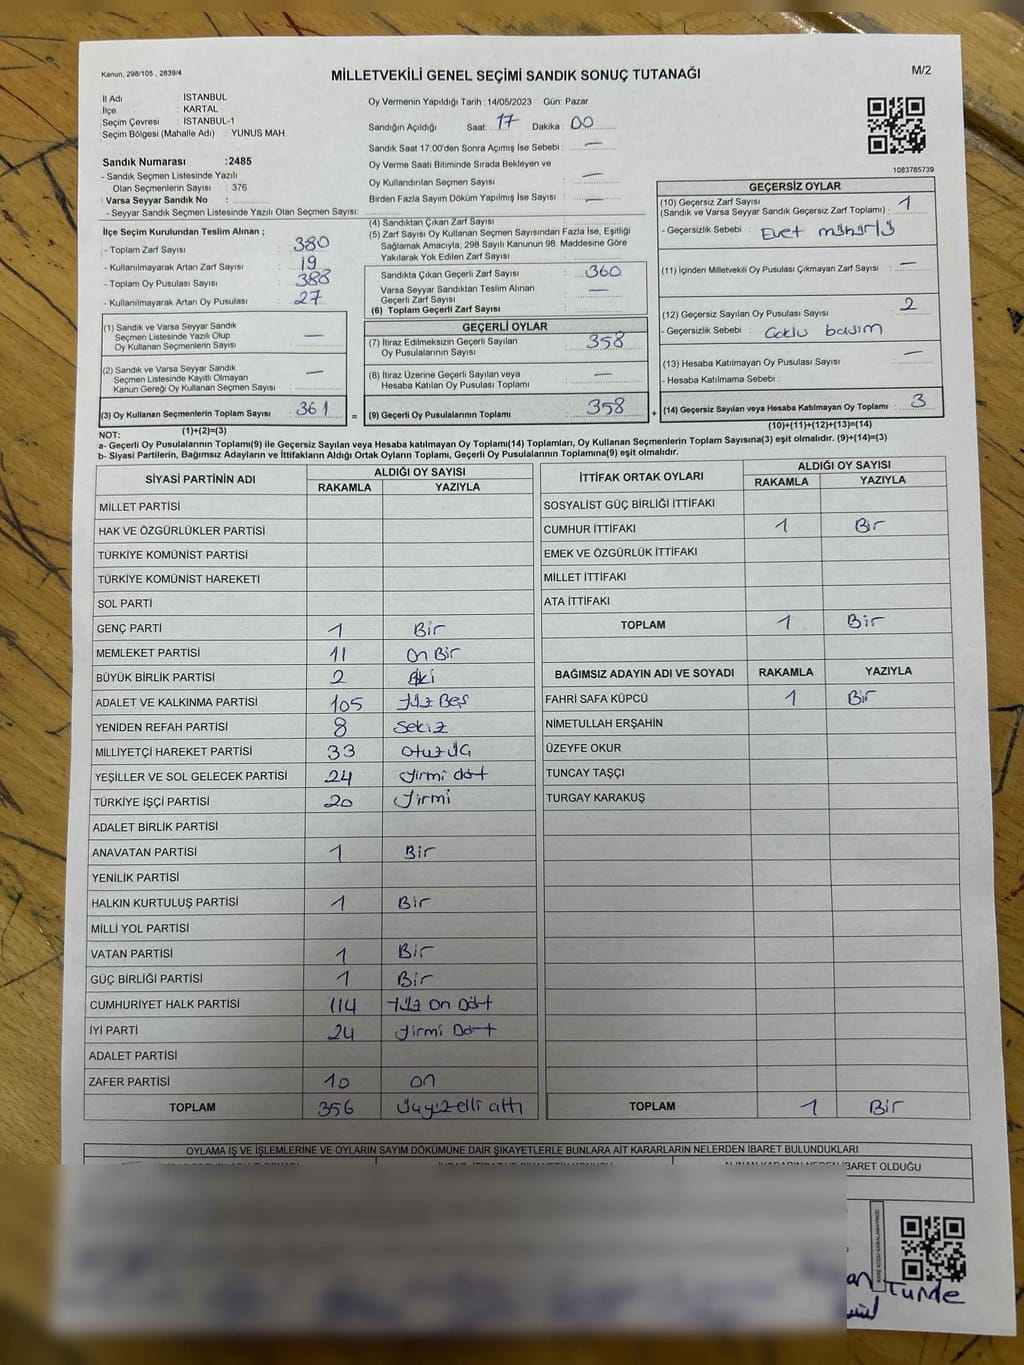 Kanun, 298/105 , 2839/4
MİLLETVEKİLİ GENEL SEÇİMİ SANDIK SONUÇ TUTANAĞI
M/2
İl Adı : İSTANBUL
İlçe : KARTAL
Seçim Çevresi : İSTANBUL-1
Seçim Bölgesi (Mahalle Adı) : YUNUS MAH.
Sandık Numarası :2485
- Sandık Seçmen Listesinde Yazılı
Olan Seçmenlerin Sayısı : 376
Varsa Seyyar Sandık No :
- Seyyar Sandık Seçmen Listesinde Yazılı Olan Seçmen Sayısı:
Oy Vermenin Yapıldığı Tarih :14/05/2023 Gün: Pazar
Sandığın Açıldığı Saat: 17 Dakika : 00
Sandık Saat 17:00'den Sonra Açımış İse Sebebi : —
Oy Verme Saati Bitiminde Sırada Bekleyen ve
Oy Kullandırılan Seçmen Sayısı : —
Birden Fazla Sayım Döküm Yapılmış İse Sayısı : —
1083785739
İlçe Seçim Kurulundan Teslim Alınan ;
- Toplam Zarf Sayısı : 380
- Kullanılmayarak Artan Zarf Sayısı : 19
- Toplam Oy Pusulası Sayısı : 388
- Kullanılmayarak Artan Oy Pusulası : 27
(1) Sandık ve Varsa Seyyar Sandık
Seçmen Listesinde Yazılı Olup
Oy Kullanan Seçmenlerin Sayısı : —
(2) Sandık ve Varsa Seyyar Sandık
Seçmen Listesinde Kayıtlı Olmayan
Kanun Gereği Oy Kullanan Seçmen Sayısı : —
(3) Oy Kullanan Seçmenlerin Toplam Sayısı : 361 =
(1)+(2)=(3)
(4) Sandıktan Çıkan Zarf Sayısı :
(5) Zarf Sayısı Oy Kullanan Seçmen Sayısından Fazla İse, Eşitliği
Sağlamak Amacıyla, 298 Sayılı Kanunun 98. Maddesine Göre
Yakılarak Yok Edilen Zarf Sayısı :
Sandıkta Çıkan Geçerli Zarf Sayısı : 360
Varsa Seyyar Sandıktan Teslim Alınan
Geçerli Zarf Sayısı : —
(6) Toplam Geçerli Zarf Sayısı :
GEÇERLİ OYLAR
(7) İtiraz Edilmeksizin Geçerli Sayılan
Oy Pusulalarının Sayısı : 358
(8) İtiraz Üzerine Geçerli Sayılan veya
Hesaba Katılan Oy Pusulası Toplamı : —
(9) Geçerli Oy Pusulalarının Toplamı : 358 +
GEÇERSİZ OYLAR
(10) Geçersiz Zarf Sayısı
(Sandık ve Varsa Seyyar Sandık Geçersiz Zarf Toplamı) : 1
- Geçersizlik Sebebi : Evet mühürlü
(11) İçinden Milletvekili Oy Pusulası Çıkmayan Zarf Sayısı : —
(12) Geçersiz Sayılan Oy Pusulası Sayısı : 2
- Geçersizlik Sebebi : Çoklu basım
(13) Hesaba Katılmayan Oy Pusulası Sayısı : —
- Hesaba Katılmama Sebebi :
(14) Geçersiz Sayılan veya Hesaba Katılmayan Oy Toplamı : 3
(10)+(11)+(12)+(13)=(14)
NOT:
a- Geçerli Oy Pusulalarının Toplamı(9) ile Geçersiz Sayılan veya Hesaba katılmayan Oy Toplamı(14) Toplamları, Oy Kullanan Seçmenlerin Toplam Sayısına(3) eşit olmalıdır. (9)+(14)=(3)
b- Siyasi Partilerin, Bağımsız Adayların ve İttifakların Aldığı Oyların Toplamı, Geçerli Oy Pusulalarının Toplamına(9) eşit olmalıdır.
SİYASİ PARTİNİN ADI ALDIĞI OY SAYISI
RAKAMLA YAZIYLA
MİLLET PARTİSİ
HAK VE ÖZGÜRLÜKLER PARTİSİ
TÜRKİYE KOMÜNİST PARTİSİ
TÜRKİYE KOMÜNİST HAREKETİ
SOL PARTİ
GENÇ PARTİ 1 Bir
MEMLEKET PARTİSİ 11 On Bir
BÜYÜK BİRLİK PARTİSİ 2 İki
ADALET VE KALKINMA PARTİSİ 105 Yüz Beş
YENİDEN REFAH PARTİSİ 8 Sekiz
MİLLİYETÇİ HAREKET PARTİSİ 33 Otuz üç
YEŞİLLER VE SOL GELECEK PARTİSİ 24 Yirmi dört
TÜRKİYE İŞÇİ PARTİSİ 20 Yirmi
ADALET BİRLİK PARTİSİ
ANAVATAN PARTİSİ 1 Bir
YENİLİK PARTİSİ
HALKIN KURTULUŞ PARTİSİ 1 Bir
MİLLİ YOL PARTİSİ
VATAN PARTİSİ 1 Bir
GÜÇ BİRLİĞİ PARTİSİ 1 Bir
CUMHURİYET HALK PARTİSİ 114 Yüz On Dört
İYİ PARTİ 24 Yirmi Dört
ADALET PARTİSİ
ZAFER PARTİSİ 10 On
TOPLAM 356 Üçyüzelli altı
İTTİFAK ORTAK OYLARI ALDIĞI OY SAYISI
RAKAMLA YAZIYLA
SOSYALİST GÜÇ BİRLİĞİ İTTİFAKI
CUMHUR İTTİFAKI 1 Bir
EMEK VE ÖZGÜRLÜK İTTİFAKI
MİLLET İTTİFAKI
ATA İTTİFAKI
TOPLAM 1 Bir
BAĞIMSIZ ADAYIN ADI VE SOYADI RAKAMLA YAZIYLA
FAHRİ SAFA KÜPCÜ 1 Bir
NİMETULLAH ERŞAHİN
ÜZEYFE OKUR
TUNCAY TAŞÇI
TURGAY KARAKUŞ
TOPLAM 1 Bir
OYLAMA İŞ VE İŞLEMLERİNE VE OYLARIN SAYIM DÖKÜMÜNE DAİR ŞİKAYETLERLE BUNLARA AİT KARARLARIN NELERDEN İBARET BULUNDUKLARI
ALINAN KARARIN NEDEN İBARET OLDUĞU